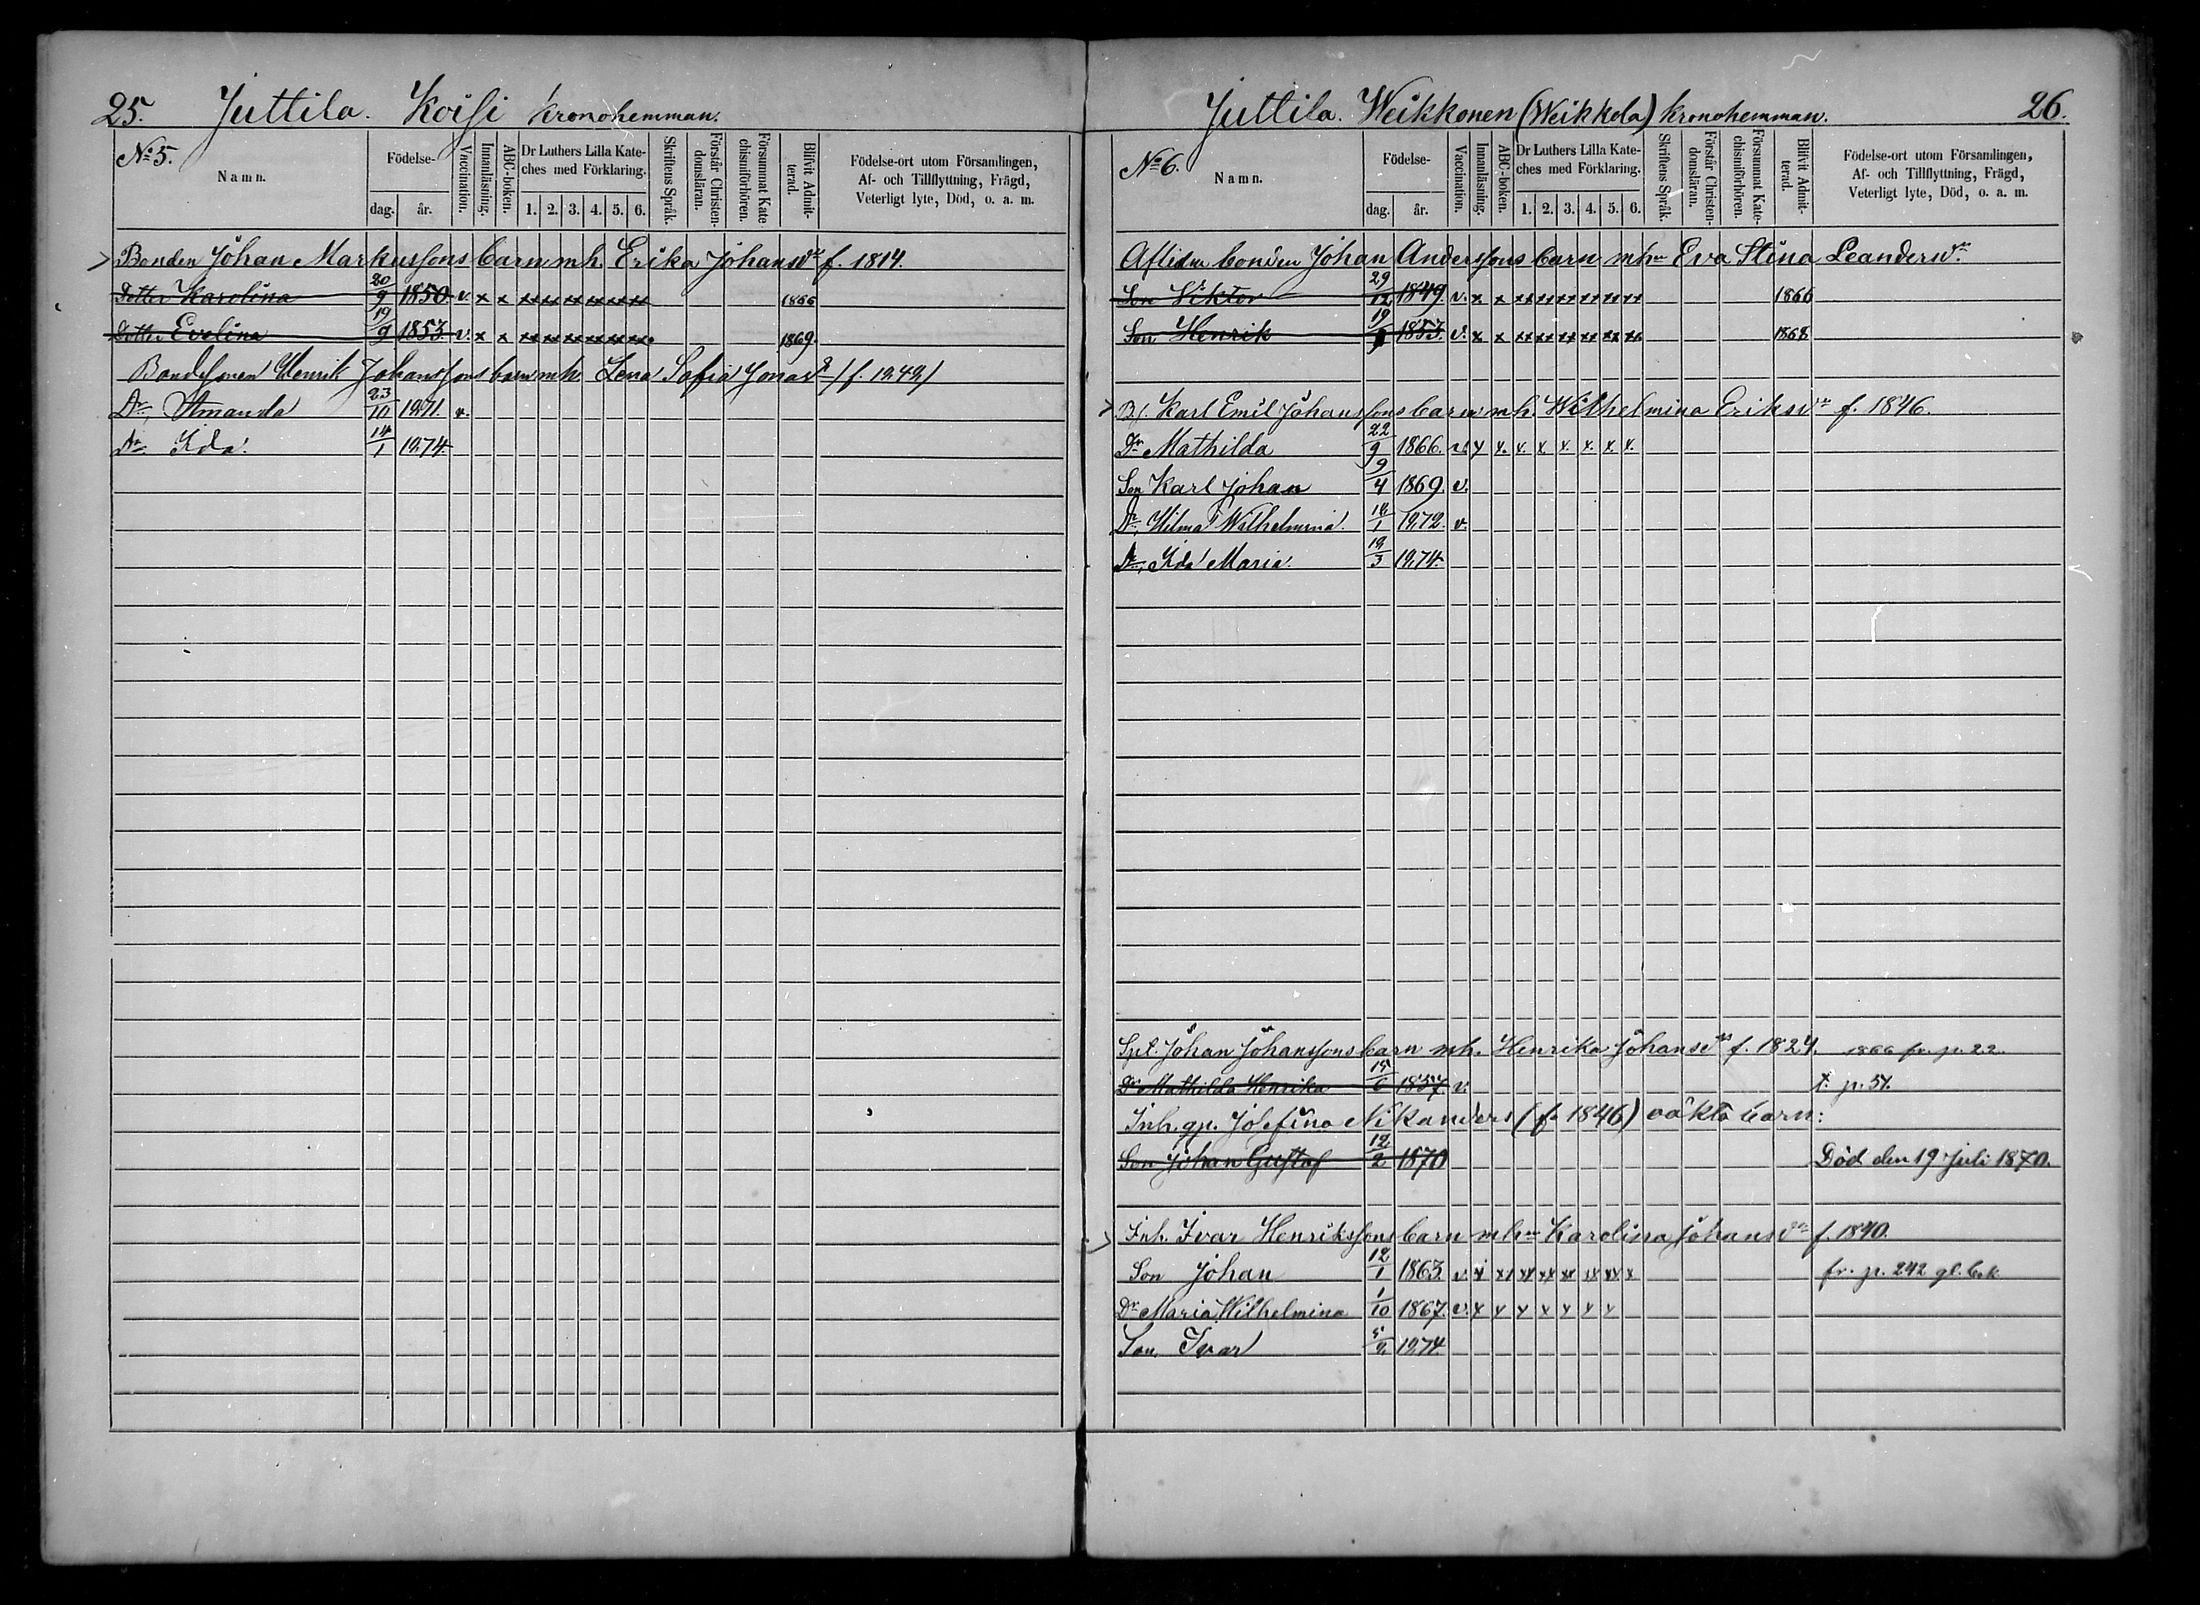 25. Juttila. Koisi kronohemman.
№ 5.
Namn.
Födelse-
dag. år.
Vaccination.
Innanläsning.
ABC-boken.
Dr Luthers Lilla Kate-
ches med Förklaring.
1. 2. 3. 4. 5. 6.
Skriftens Språk.
Förstår Christen-
domsläran.
Försummat Kate
chismiförhören.
Blifvit Admit-
terad.
Födelse-ort utom Församlingen,
Af- och Tillflyttning, Frägd,
Veterligt lyte, Död, o. a. m.
Bonden Johan Markussons barn mh. Erika Johansdr f. 1814.
Dotter Karolina 20/9 1850 v. x x xx xx xx xx xx xx 1866
Dotter Evelina 19/9 1853 v. x x xx xx xx xx xx xx 1869.
Bondesonen Henrik Johanssons barn mh. Lena Sofia Jonasdr (f. 1842)
Dr. Amanda 23/10 1871. v.
Dr. Ida. 14/1 1874.
Juttila. Weikkonen (Weikkola) kronohemman. 26.
№ 6.
Namn.
Födelse-
dag. år.
Vaccination.
Innanläsning.
ABC-boken.
Dr Luthers Lilla Kate-
ches med Förklaring.
1. 2. 3. 4. 5. 6.
Skriftens Språk.
Förstår Christen-
domsläran.
Försummat Kate-
chismiförhören.
Blifvit Admit-
terad.
Födelse-ort utom Församlingen,
Af- och Tillflyttning, Frägd,
Veterligt lyte, Död, o. a. m.
Aflidne bonden Johan Anderssons barn mhu Eva Stina Leandersdr
Son Viktor 29/12 1849. v. x x xx xx xx xx xx xx 1866
Son Henrik 19/9 1853. v. x x xx xx xx xx xx xx 1868
Bj. Karl Emil Johanssons barn mh. Wilhelmina Eriksdr f. 1846.
Dr Mathilda 22/9 1866. v. x x. x. x. x. x. x. x.
Son Karl Johan 9/4 1869. v.
Dr. Hilma Wilhelmina. 18/1 1872. v.
Dr. Ida Maria. 18/3 1874.
Spt. Johan Johanssons barn mh. Henrika Johansdr f. 1824. 1866 fr. p. 22.
Dr Mathilda Henrika 15/6 1857 v. t. p. 51.
Inh. gp. Josefina Nikanders (f. 1846) oäkta barn:
Son Johan Gustaf 12/2 1870 Död den 19 Juli 1870.
Inh. Ivar Henrikssons barn mhu Karolina Johansdr f. 1840.
Son Johan 12/1 1863. v. x xx xx xx xx xx xx x fr. p. 242 gl. bok
Dr Maria Wilhelmina 1/10 1867. v. x x x x x x x
Son. Ivar 1874.